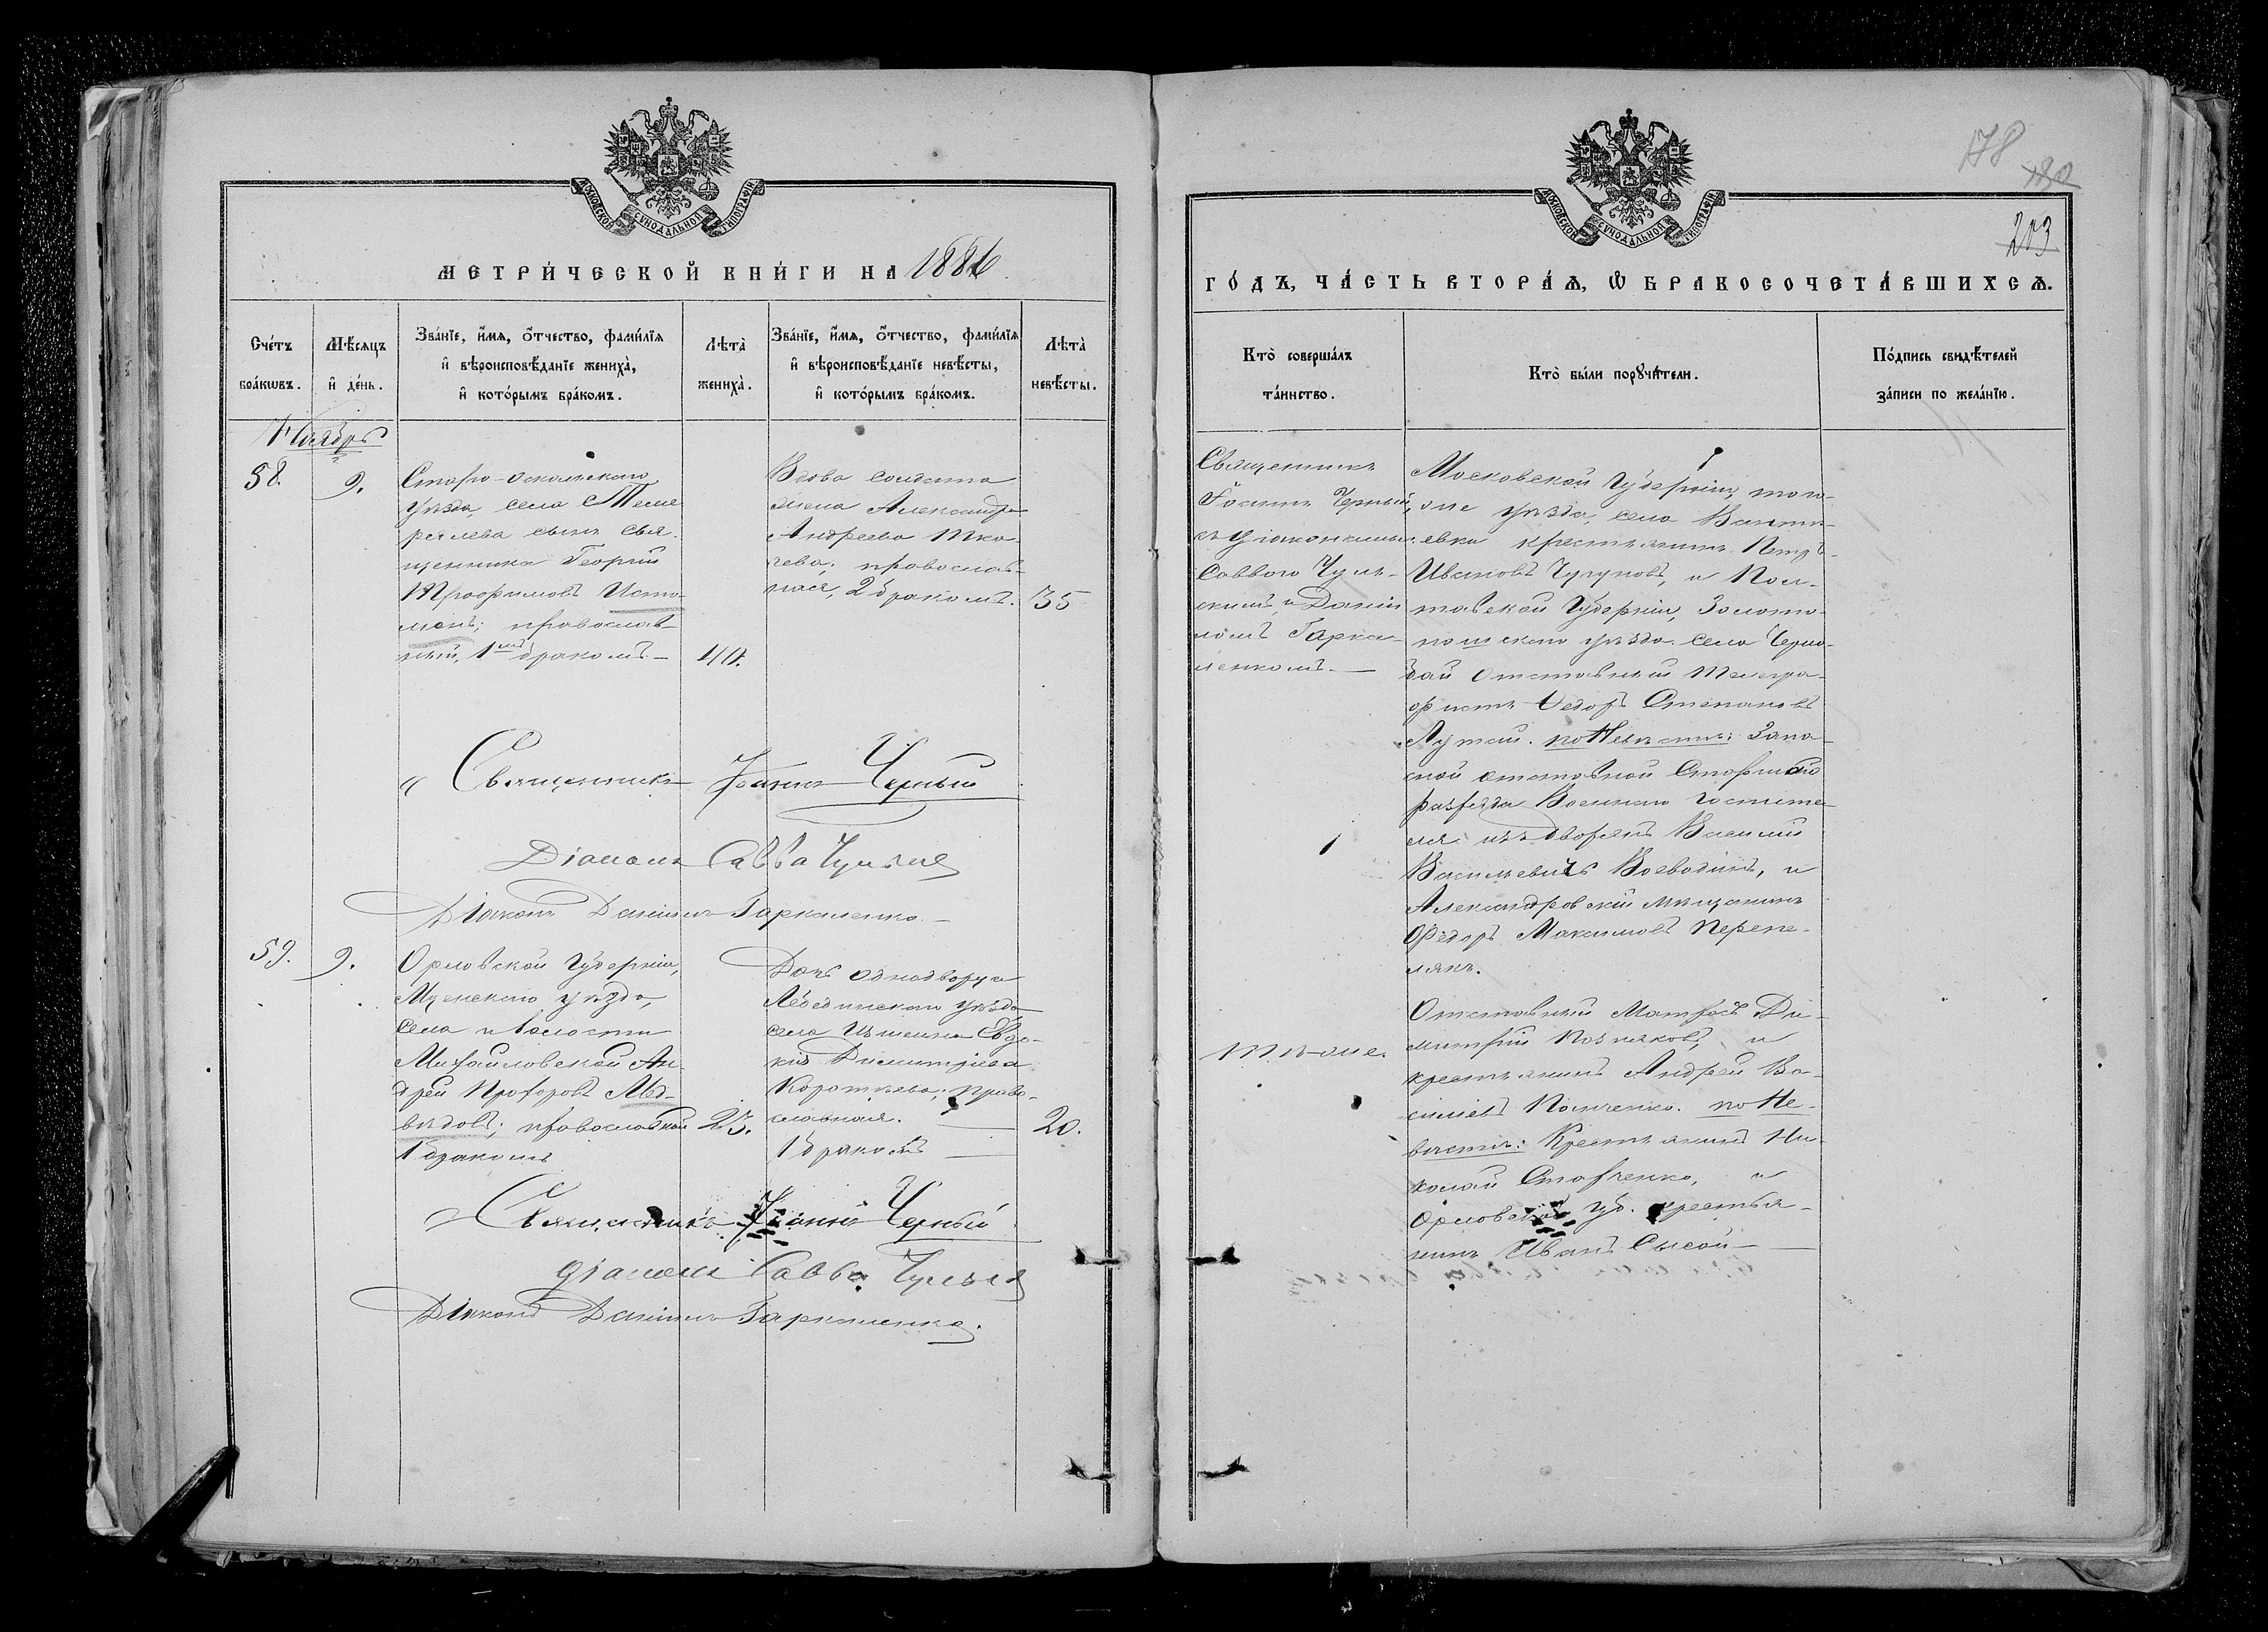 МОСКОВСКОЙ СѴНОДАЛЬНОЙ ТИПОГРАФІИ
МЕТРИ́ЧЕСКОЙ КНИ́ГИ НА 1886
Сче́тъ бра́кωвъ.
Мѣ́сяцъ и҆ де́нь.
Зва́нїе, и҆́мя, ѻ҆́тчество, фами́лїя
и҆ вѣроисповѣ́данїе жениха̀,
и҆ кото́рымъ бра́комъ.
Лѣта̀ жениха̀.
Зва́нїе, и҆́мя, ѻ҆́тчество, фами́лїя
и҆ вѣроисповѣ́данїе невѣ́сты,
и҆ кото́рымъ бра́комъ.
Лѣта̀ невѣ́сты.
Ноябрь
58.
9.
Старо-Оскольскаго
уѣзда, села
сынъ свя-
щенника Георгій
Трофимовъ Исто-
минъ; православ-
ный, 1мъ бракомъ.—
40.
Вдова солдата
Александра
Андреева Тка-
чева; православ-
ная, 2 бракомъ.
35
Священникъ Іоаннъ Черный
Діаконъ Савва
Діаконъ Даніилъ Гаркаленко.
59.
9.
Орловской Губерніи,
Мценскаго уѣзда,
села и волости
Михайловской Ан-
дрей Прохоровъ Мед-
вѣдовъ; православный
1 бракомъ
25.
Дочь однодворца
Лебединскаго уѣзда
села Евдо-
кія Димитріева
Короткова; право-
славная.
1 бракомъ
20.
Священникъ Іоаннъ Черный
Діаконъ Савва
Діаконъ Даніилъ Гаркаленко.
МОСКОВСКОЙ СѴНОДАЛЬНОЙ ТИПОГРАФІИ
178
203
ГО́ДЪ, ЧА́СТЬ ВТОРА́Я, Ѡ҆ БРАКОСОЧЕТА́ВШИХСЯ.
Кто̀ соверша́лъ
та́инство.
Кто̀ бы́ли порꙋчи́тели.
По́дпись свидѣ́телей
за́писи по жела́нїю.
Священникъ
Іоаннъ Черный,
съ діаконами:
Саввою
и Даніи-
ломъ Гарка-
ленкомъ.—
Московской Губерніи, того-
же уѣзда, села
крестьянинъ Петръ
Ивановъ Чугуновъ, и Пол-
тавской Губерніи, Золото-
ношскаго уѣзда села Черно-
бай отставный телегра-
фистъ Ѳедоръ Степановъ
по Невѣстѣ: Запа-
сной отставной
разряда Военнаго Госпита-
ля изъ дворянъ Василій
Васильевичъ Воеводинъ, и
Александровскій мѣщанинъ
Ѳедоръ Максимовъ Перепе-
ляхъ.
тѣ-же.
Отставный Матросъ Ди-
митрій Позняковъ, и
крестьянинъ Андрей Ва-
сильевъ Панченко. по Не-
вѣстѣ: Крестьянинъ Ни-
колай Ставченко, и
Орловской Губ. крестья-
нинъ Иванъ Сысой—